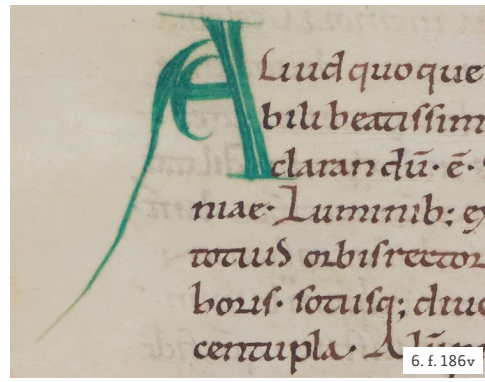 ALiud quoque
bili beatissim
clarandū· ē·
niae· Luminib; ex
totius orbis rector
boris·
centupla·
6. f. 186v